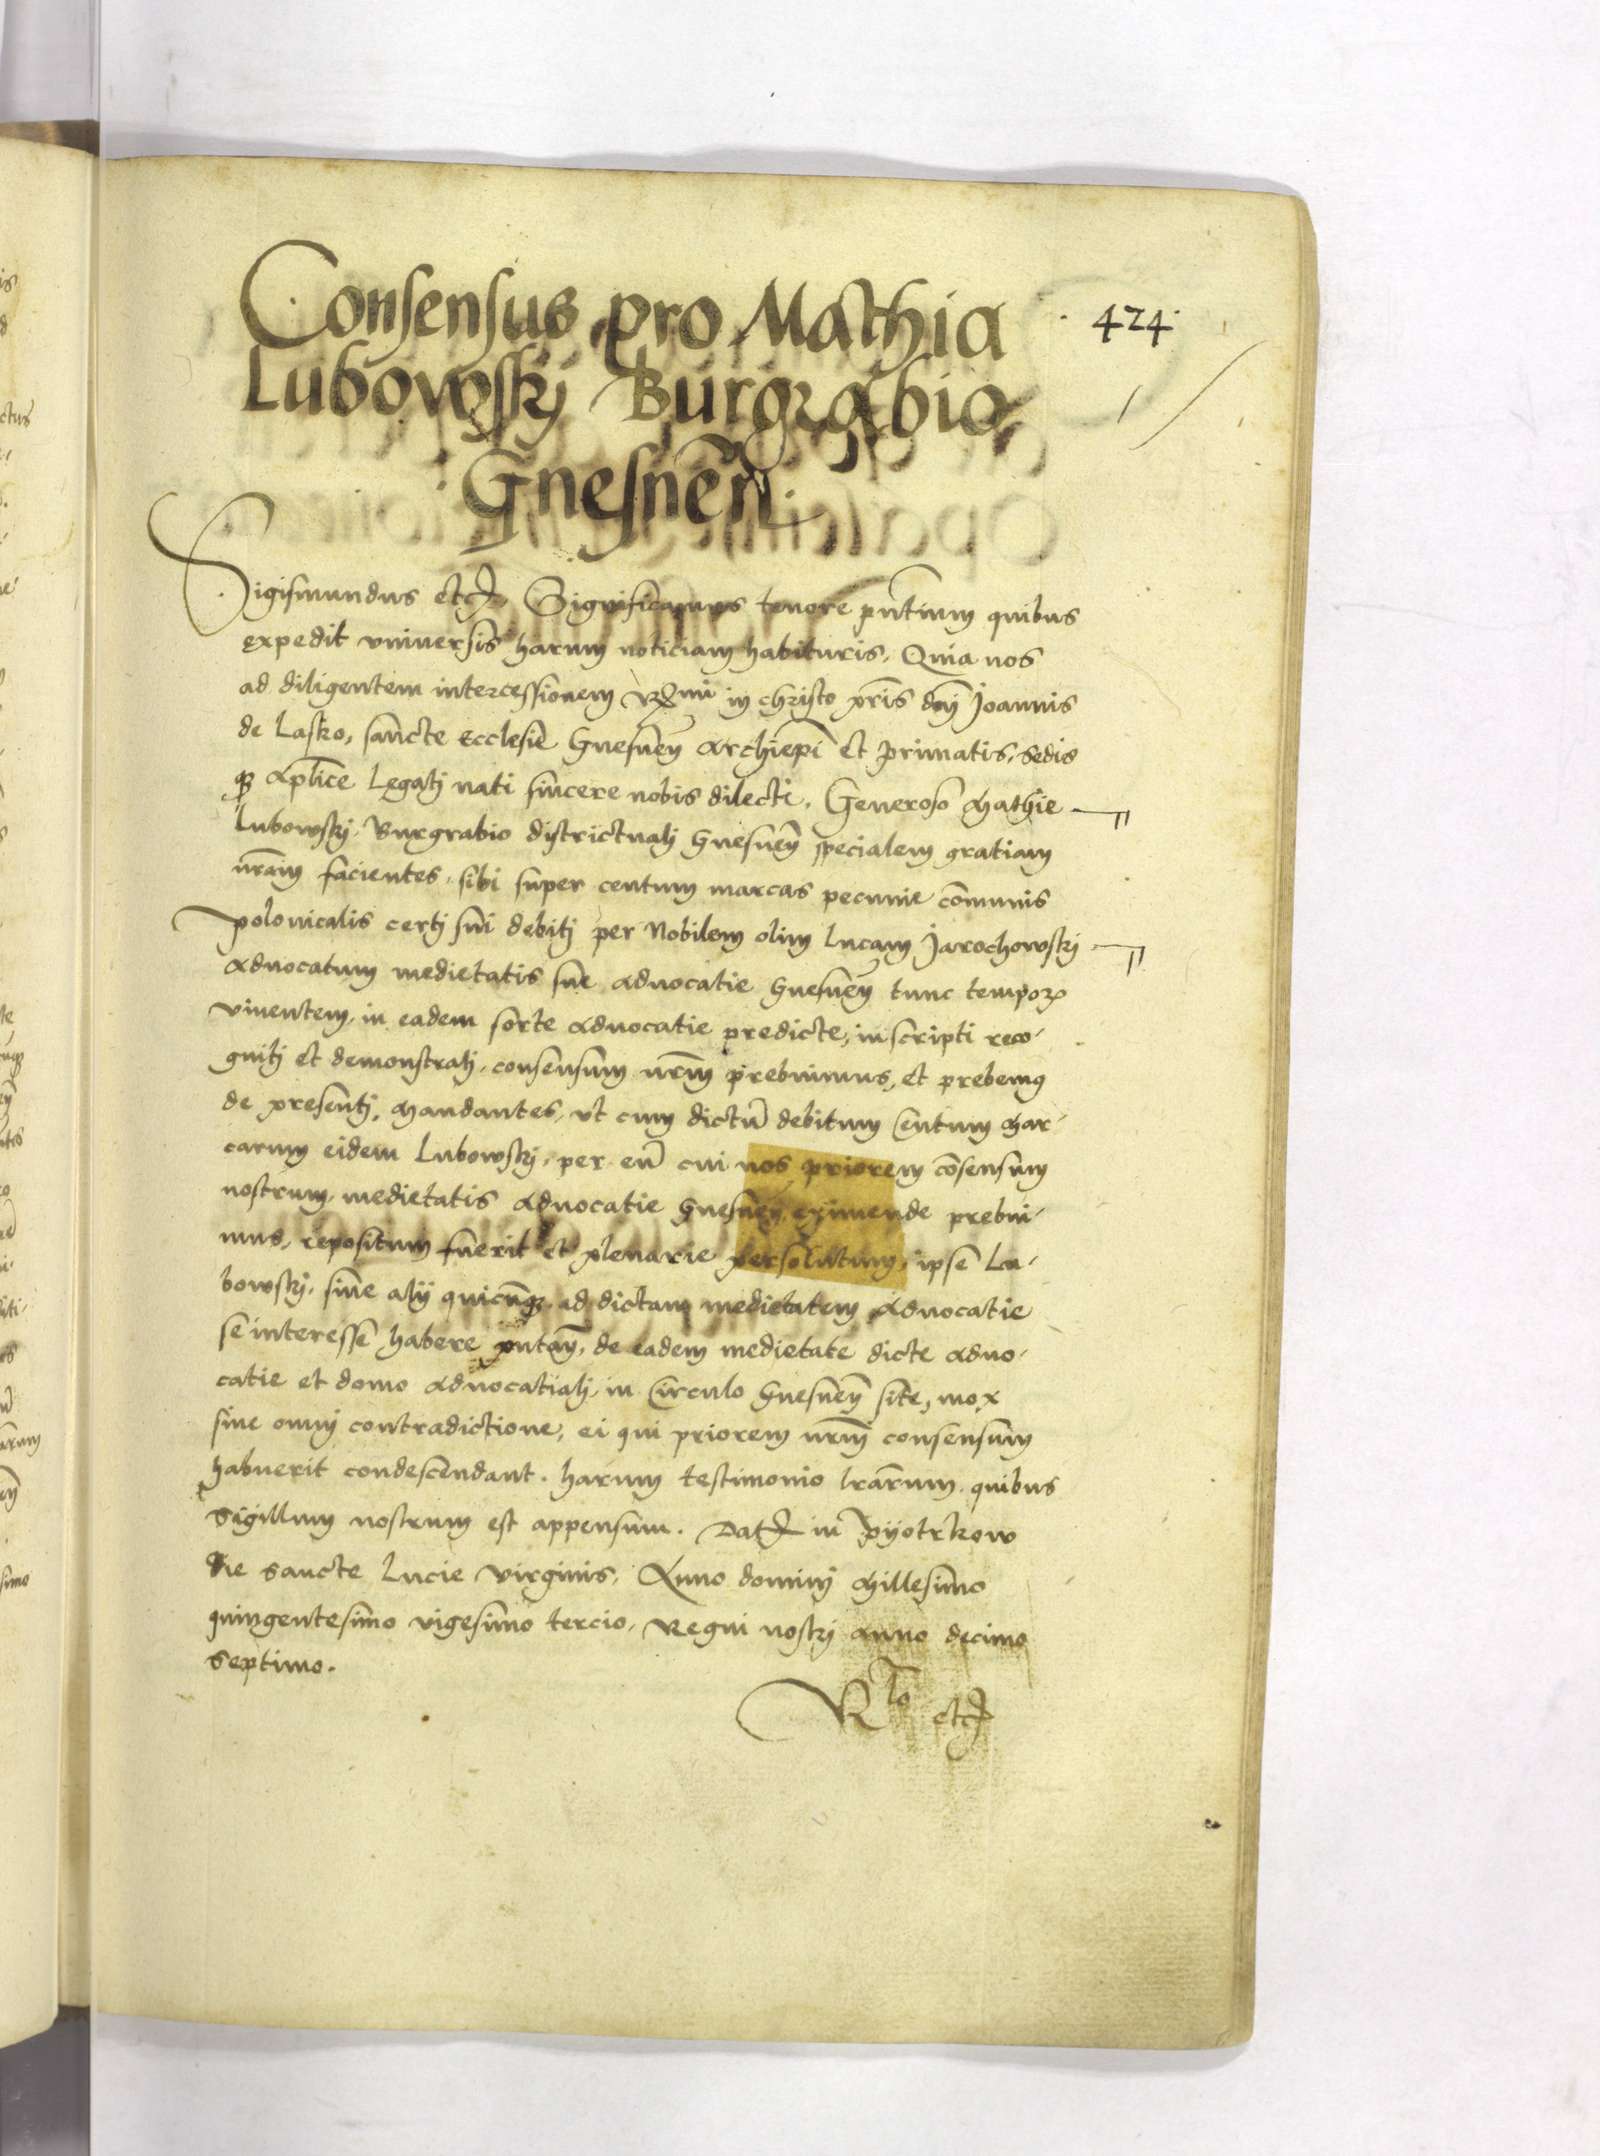 Consensus pro Mathia
Lubowskj Burgrabio
Gnesneñ.
424
Sigismundus etc. Significamus tenore pñtium quibus
expedit vniuersis harum noticiam habituris, Quia nos
ad diligentem intercessionem Rmi in christo pr̃is dñj Joannis
de Lasko, sancte Ecclesie Gnesneñ Archiepĩ et Primatis, sedis
qz aplice Legatj nati sincere nobis dilecti, Generoso Mathie
Lubowskj, Burgrabio districtualj Gnesneñ specialem gratiam
nr̃am facientes, sibi super centum marcas pecunie cõmunis
polonicalis certj sui debitj per Nobilem olim Lucam Jarochowskj
Aduocatum medietatis sue aduocatie Gnesneñ tunc tempor
viuentem, in eadem sorte Aduocatie predicte, inscripti reco-
gnitj et demonstratj, consensum nr̃m prebuimus, et prebemus
de presentj, Mandantes, vt cum dictũ debitum Centum Mar-
carum eidem Lubowskj, per eũ cui nos priorem cõsensum
nostrum, medietatis Aduocatie Gnesneñ eximende prebui-
mus, repositum fuerit et plenarie persolutum, ipse Lu-
bowskj, siue alij quicũqz, ad dictam medietatem Aduocatie
se interesse habere putañ, de eadem medietate dicte Aduo-
catie et domo Aduocatialj in Circulo Gnesneñ site, mox
sine omnj contradictione, ei qui priorem nr̃m consensum
habuerit condescendant. harum testimonio lr̃arum, quibus
Sigillum nostrum est appensum. Dat in Pyotrkow
die sancte Lucie Virginis, Anno dominj Millesimo
quingentesimo vigesimo tercio, Regni nostrj anno decimo
septimo.
Rlo etc